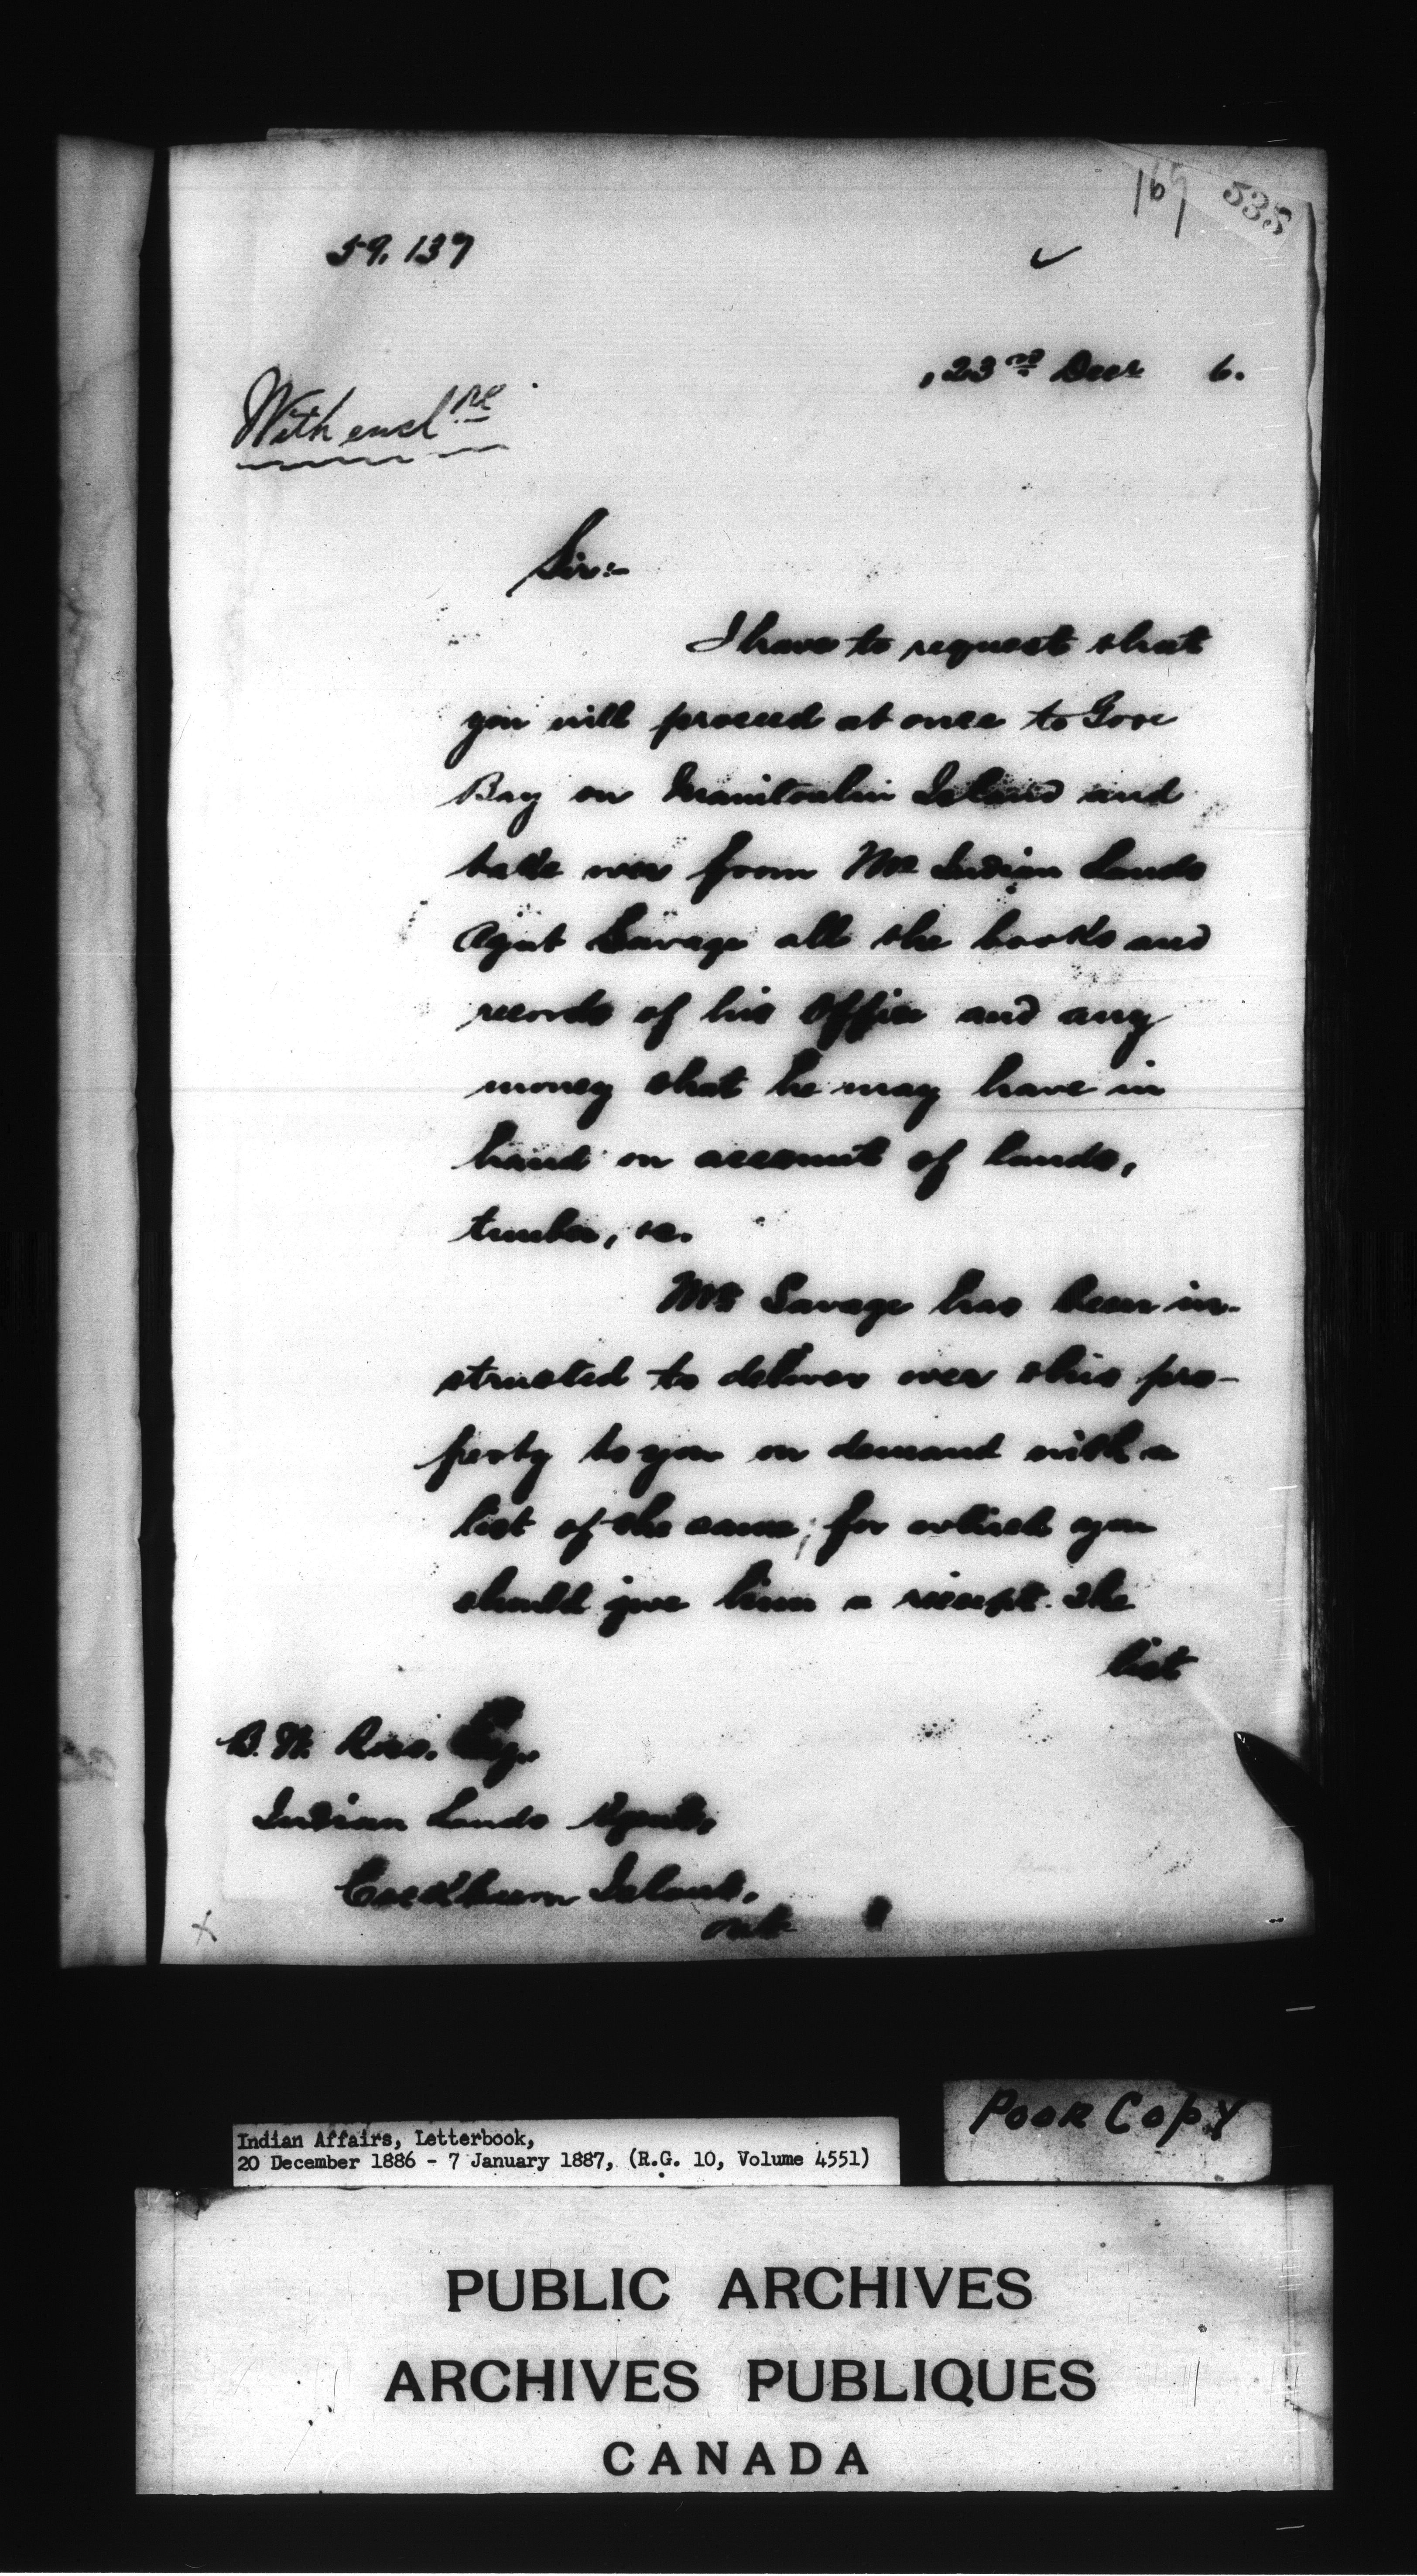 169 535
59.137
, 23rd Decr 6.
With enclre
Sir:-
I have to request that
you will proceed at once to Gore
Bay on Manitoulin Island and
take over from Mr Indian Lands
Agent Savage all the books and
records of his office and any
money that he may have in
hand on account of lands,
timber, &c.
Mr Savage has been in-
structed to deliver over this pro-
perty to you on demand with a
list of the same; for which you
should give him a receipt. The
list
B. W. Ross. Esq.
Indian Lands Agent,
Cockburn Island,
Ont
Poor Copy
Indian Affairs, Letterbook,
20 December 1886 - 7 January 1887, (R.G. 10, Volume 4551)
PUBLIC ARCHIVES
ARCHIVES PUBLIQUES
CANADA